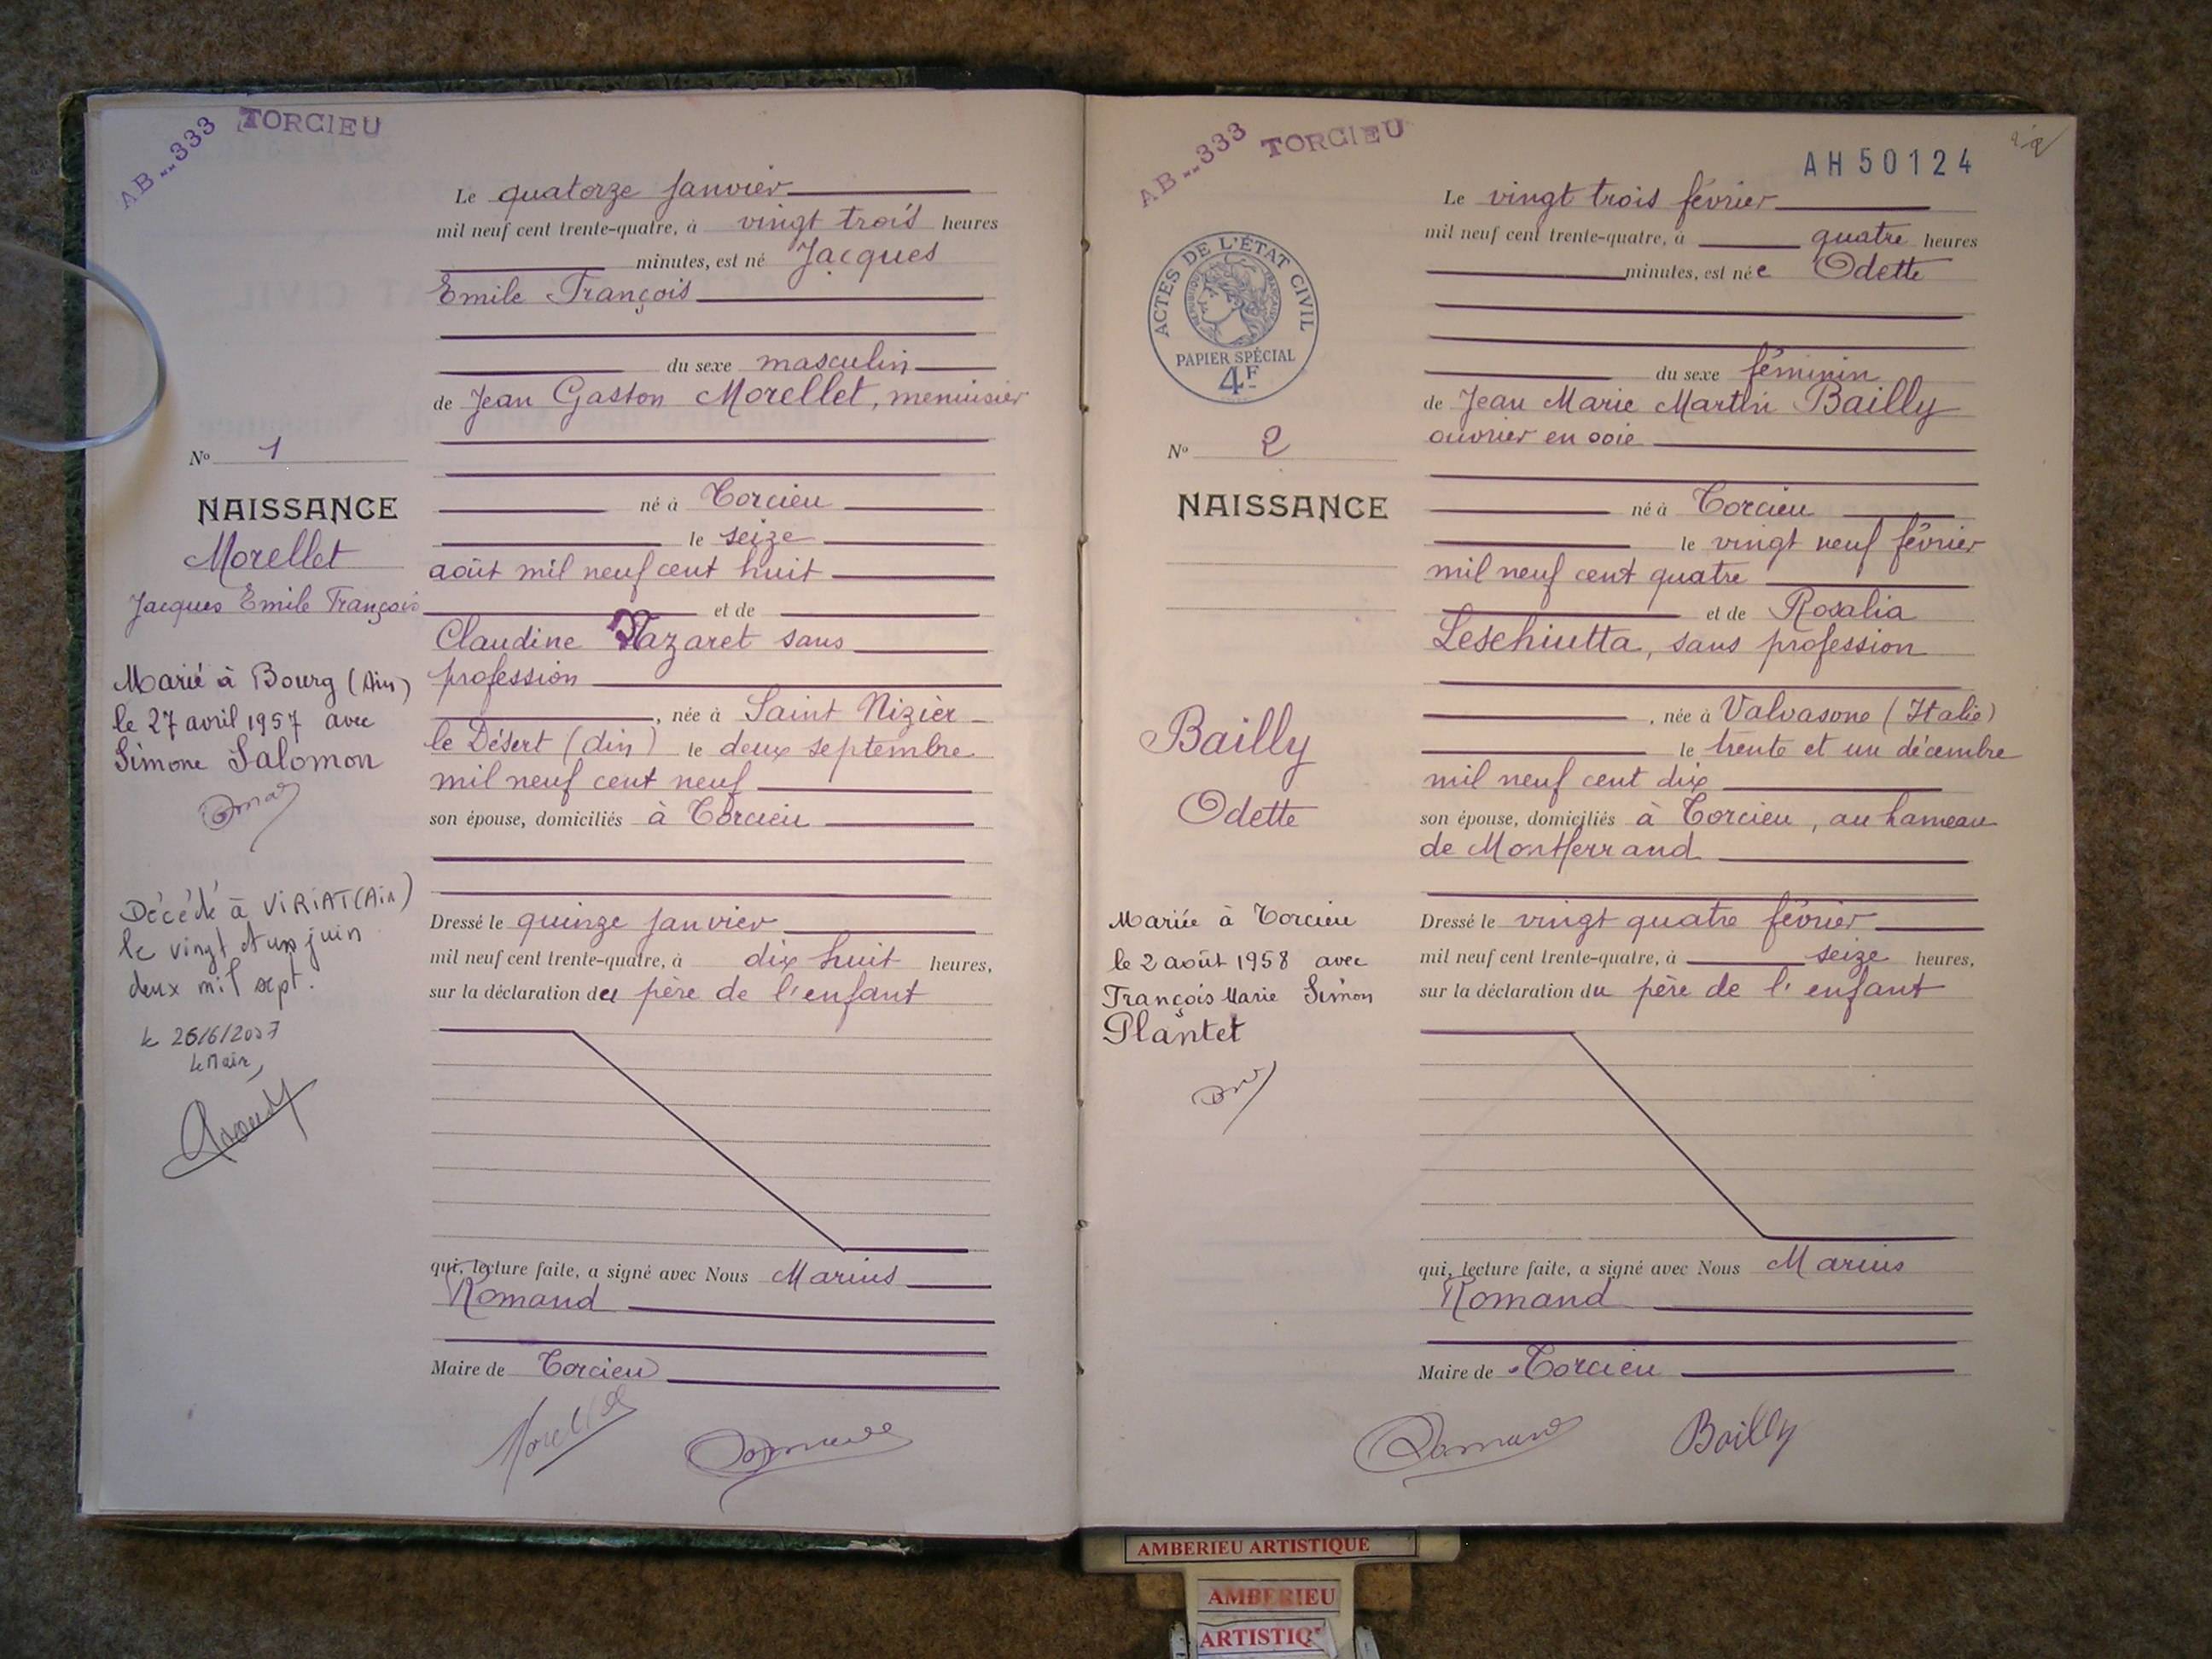 AB...333 TORCIEU
Le quatorze janvier
mil neuf cent trente-quatre, à vingt trois heures
minutes, est né Jacques
Emile François
du sexe masculin
de Jean Gaston Morellet, menuisier
né à Torcieu
le seize
août mil neuf cent huit
et de
Claudine Nazaret sans
profession
, née à Saint Nizier
le Désert (Ain) le deux septembre
mil neuf cent neuf
son épouse, domiciliés à Torcieu
Dressé le quinze janvier
mil neuf cent trente-quatre, à dix huit heures,
sur la déclaration du père de l'enfant
qui, lecture faite, a signé avec Nous Marius
Romand
Maire de Torcieu
No 1
NAISSANCE
Morellet
Jacques Emile François
Marié à Bourg (Ain)
le 27 avril 1957 avec
Simone Salomon
Décédé à VIRIAT (Ain)
le vingt et un juin
deux mil sept.
le 26/6/2007
Le Maire,
AB...333 TORCIEU
AH 50124
ACTES DE L'ÉTAT CIVIL
RÉPUBLIQUE FRANÇAISE
PAPIER SPÉCIAL
4F
Le vingt trois février
mil neuf cent trente-quatre, à quatre heures
minutes, est née Odette
du sexe féminin
de Jean Marie Martin Bailly
ouvrier en soie
né à Torcieu
le vingt neuf février
mil neuf cent quatre
et de Rosalia
Leschiutta, sans profession
, née à Valvasone (Italie)
le trente et un décembre
mil neuf cent dix
son épouse, domiciliés à Torcieu, au hameau
de Montferrand
Dressé le vingt quatre février
mil neuf cent trente-quatre, à seize heures,
sur la déclaration du père de l'enfant
qui, lecture faite, a signé avec Nous Marius
Romand
Maire de Torcieu
Bailly
No 2
NAISSANCE
Bailly
Odette
Mariée à Torcieu
le 2 août 1958 avec
François Marie Simon
Plantet
AMBERIEU ARTISTIQUE
AMBERIEU
ARTISTIQ